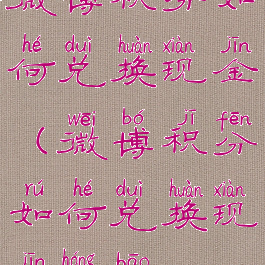 微博积分如
hé duì huàn xiàn jīn
何兑换现金
wēi bó jī fēn
（微博积分
rú hé duì huàn xiàn
如何兑换现
jīn hóng bāo